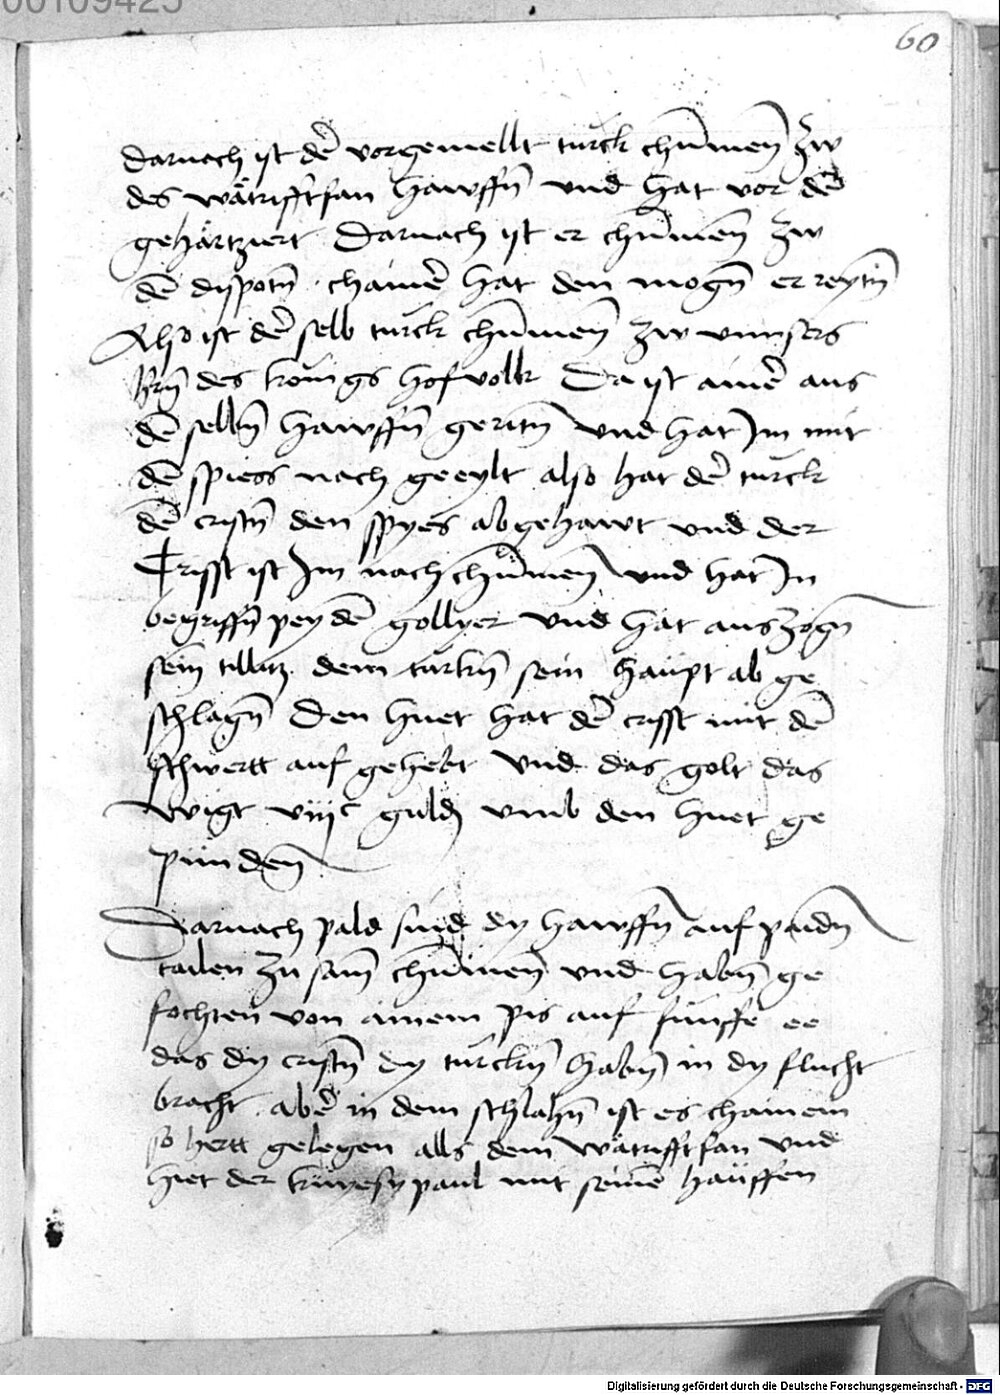 00109425
60
darnach ist de᷑ vorgemellt turck chūmen̄ zw
des wätrifftfan hawffn̄ vnd hat vor dē
gehärtziert Darnach ist er chūmen̄ zw
dē dispotn̄ . chaine᷑ hat den mogn̄ erreytn̄
Also ist de᷑ selb turck chūmen̄ zw vnnsers
hrn̄ des konigs hofvolk Da ist aine᷑ aus
dē selbn̄ hawffn̄ geritn̄ vnd hat Im mit
dē spiess nach geeylt also hat de᷑ turck
dē cristn̄ den spyes abgehawt vnd der
Crisst ist Im nachchūmen̄ vnd hat In
begriffn̄ pey dē gollyer vnd hat auszogn̄
sein tillitz dem turkn̄ sein haüpt ab ge
schlagn̄ Den huet hat de᷑ crisst mit dē
schwertt auf gehebt vnd das golt das
wigt viijc guld vmb den huet ge
punden̄
Darnach pald sind dy hawffn̄ auf paidn̄
tailen zu sam̄ chūmen̄ vnd habn̄ ge
fochten von ainem pis auf funffe ee
das dy cristn̄ dy turckn̄ habn̄ in dy flucht
bracht . abe᷑ in dem schlahn̄ ist es chainem
so hertt gelegen alls dem wätrifftfan vnd
hiet der kinyesy paul mit seinē häuffen
Digitalisierung gefördert durch die Deutsche Forschungsgemeinschaft - DFG